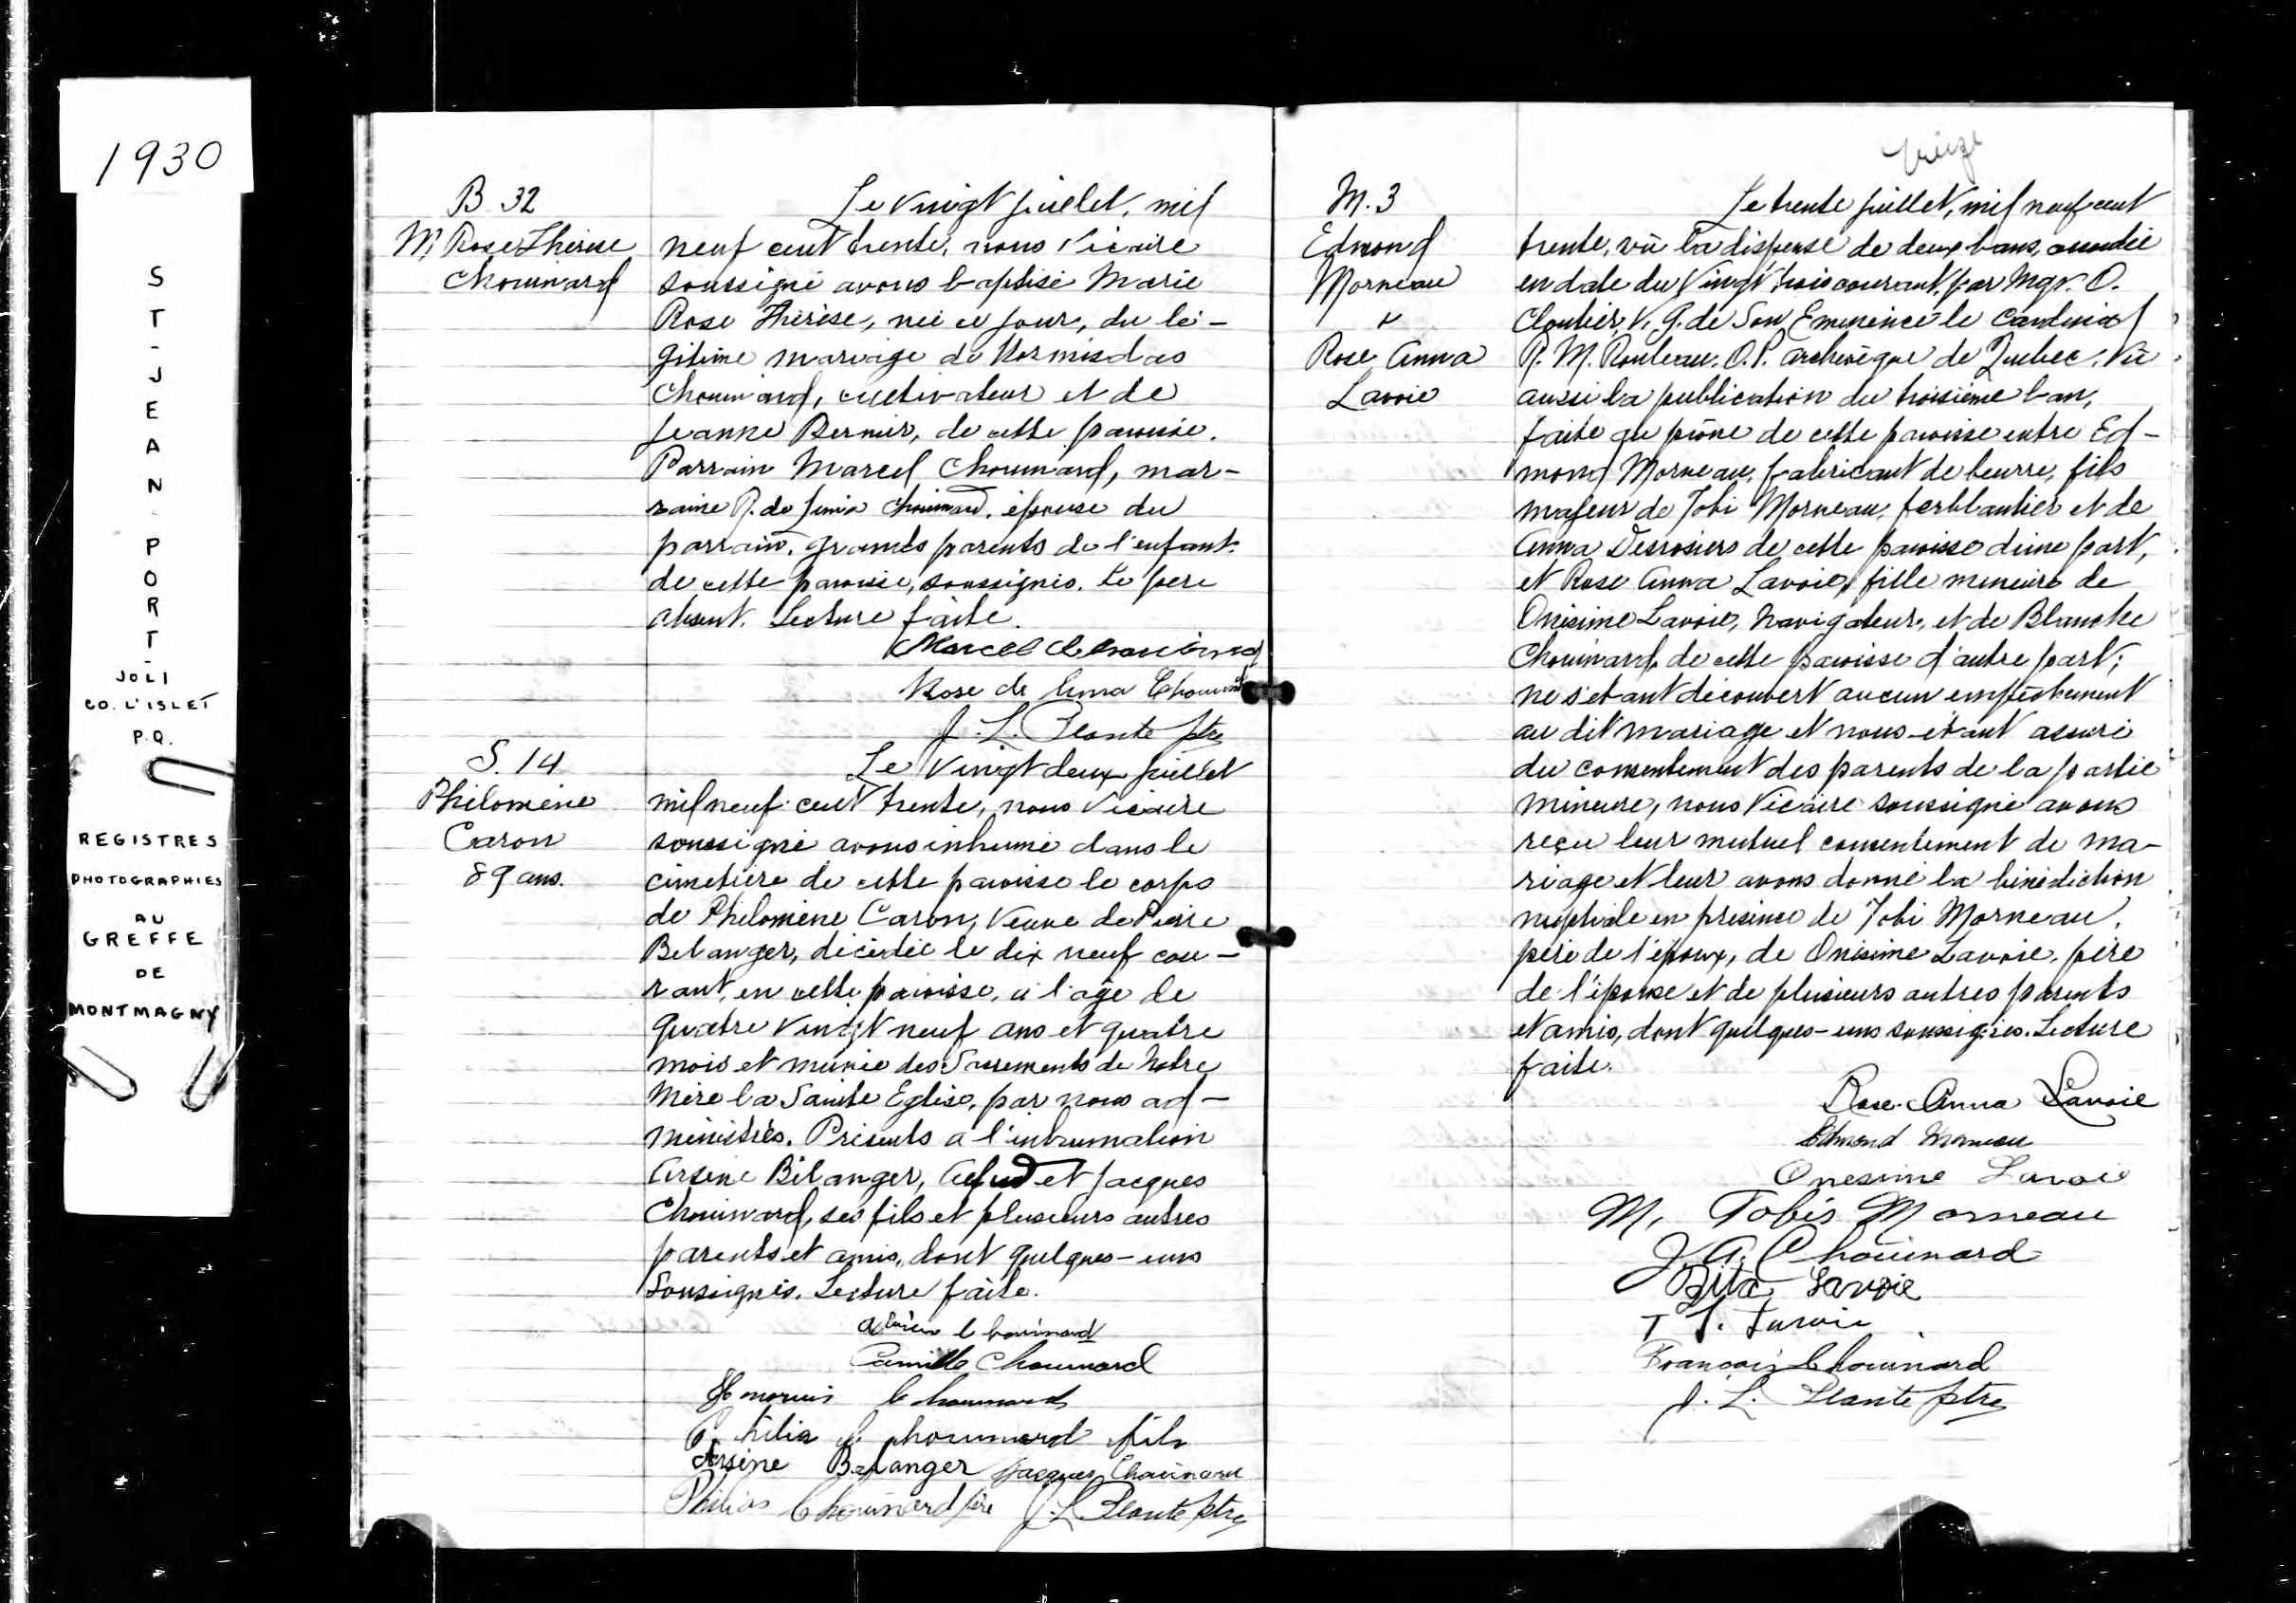 1930
ST-JEAN-PORT-
JOLI
CO. L'ISLET
P.Q.
REGISTRES
PHOTOGRAPHIES
AU
GREFFE
DE
MONTMAGNY
B 32
M. Rose Thérèse
Chouinard
Le vingt juillet, mil
neuf cent trente, nous Vicaire
soussigné avons baptisé Marie
Rose Thérèse, née ce jour, du lé-
gitime mariage de Hormisdas
Chouinard, cultivateur et de
Jeanne Bernier, de cette paroisse.
Parrain Marcel Chouinard, mar-
raine R. de Lima Chouinard, épouse du
parrain, grands parents de l'enfant
de cette paroisse, soussignés. Le père
absent. Lecture faite.
Marcel Chouinard
Rose de Lima Chouinard
J. L. Plante ptre
S. 14
Philomène
Caron
89 ans.
Le vingt deux juillet
mil neuf cent trente, nous Vicaire
soussigné avons inhumé dans le
cimetière de cette paroisse le corps
de Philomène Caron, Veuve de Pierre
Bélanger, décédée le dix neuf cou-
rant, en cette paroisse, à l'âge de
quatre vingt neuf ans et quatre
mois et munie des Sacrements de Notre
Mère la Sainte Eglise, par nous ad-
ministrés. Présents à l'inhumation
Arsène Bélanger, et Jacques
Chouinard, ses fils et plusieurs autres
parents et amis, dont quelques-uns
soussignés. Lecture faite.
Chouinard
Camille Chouinard
Chouinard
Chouinard fils
Arsène Bélanger Jacques Chouinard
Philias Chouinard père J. L. Plante ptre
treize
M. 3
Edmond
Morneau
&
Rose Anna
Lavoie
Le trente juillet, mil neuf cent
trente, vû la dispense de deux bans, accordée
en date du vingt trois courant, par Mgr. O.
Cloutier, V. G. de Son Eminence le Cardinal
R. M. Rouleau. O.P. archevêque de Québec. Vû
aussi la publication du troisième ban,
faite au prône de cette paroisse entre Ed-
mond Morneau, fabricant de beurre, fils
majeur de Tobi Morneau, ferblantier et de
Anna Desrosiers de cette paroisse d'une part,
et Rose Anna Lavoie, fille mineure de
Onésime Lavoie, Navigateur, et de Blanche
Chouinard, de cette paroisse d'autre part;
ne s'étant découvert aucun empêchement
au dit mariage et nous étant assuré
du consentement des parents de la partie
mineure, nous Vicaire soussigné avons
reçu leur mutuel consentement de ma-
riage et leur avons donné la bénédiction
nuptiale en présence de Tobi Morneau,
père de l'époux, de Onésime Lavoie, père
de l'épouse et de plusieurs autres parents
et amis, dont quelques-uns soussignés. Lecture
faite.
Rose-Anna Lavoie
Edmond Morneau
Onesime Lavoie
M. Tobis Morneau
J. A. Chouinard
Rita Lavoie
François Chouinard
J. L. Plante ptre